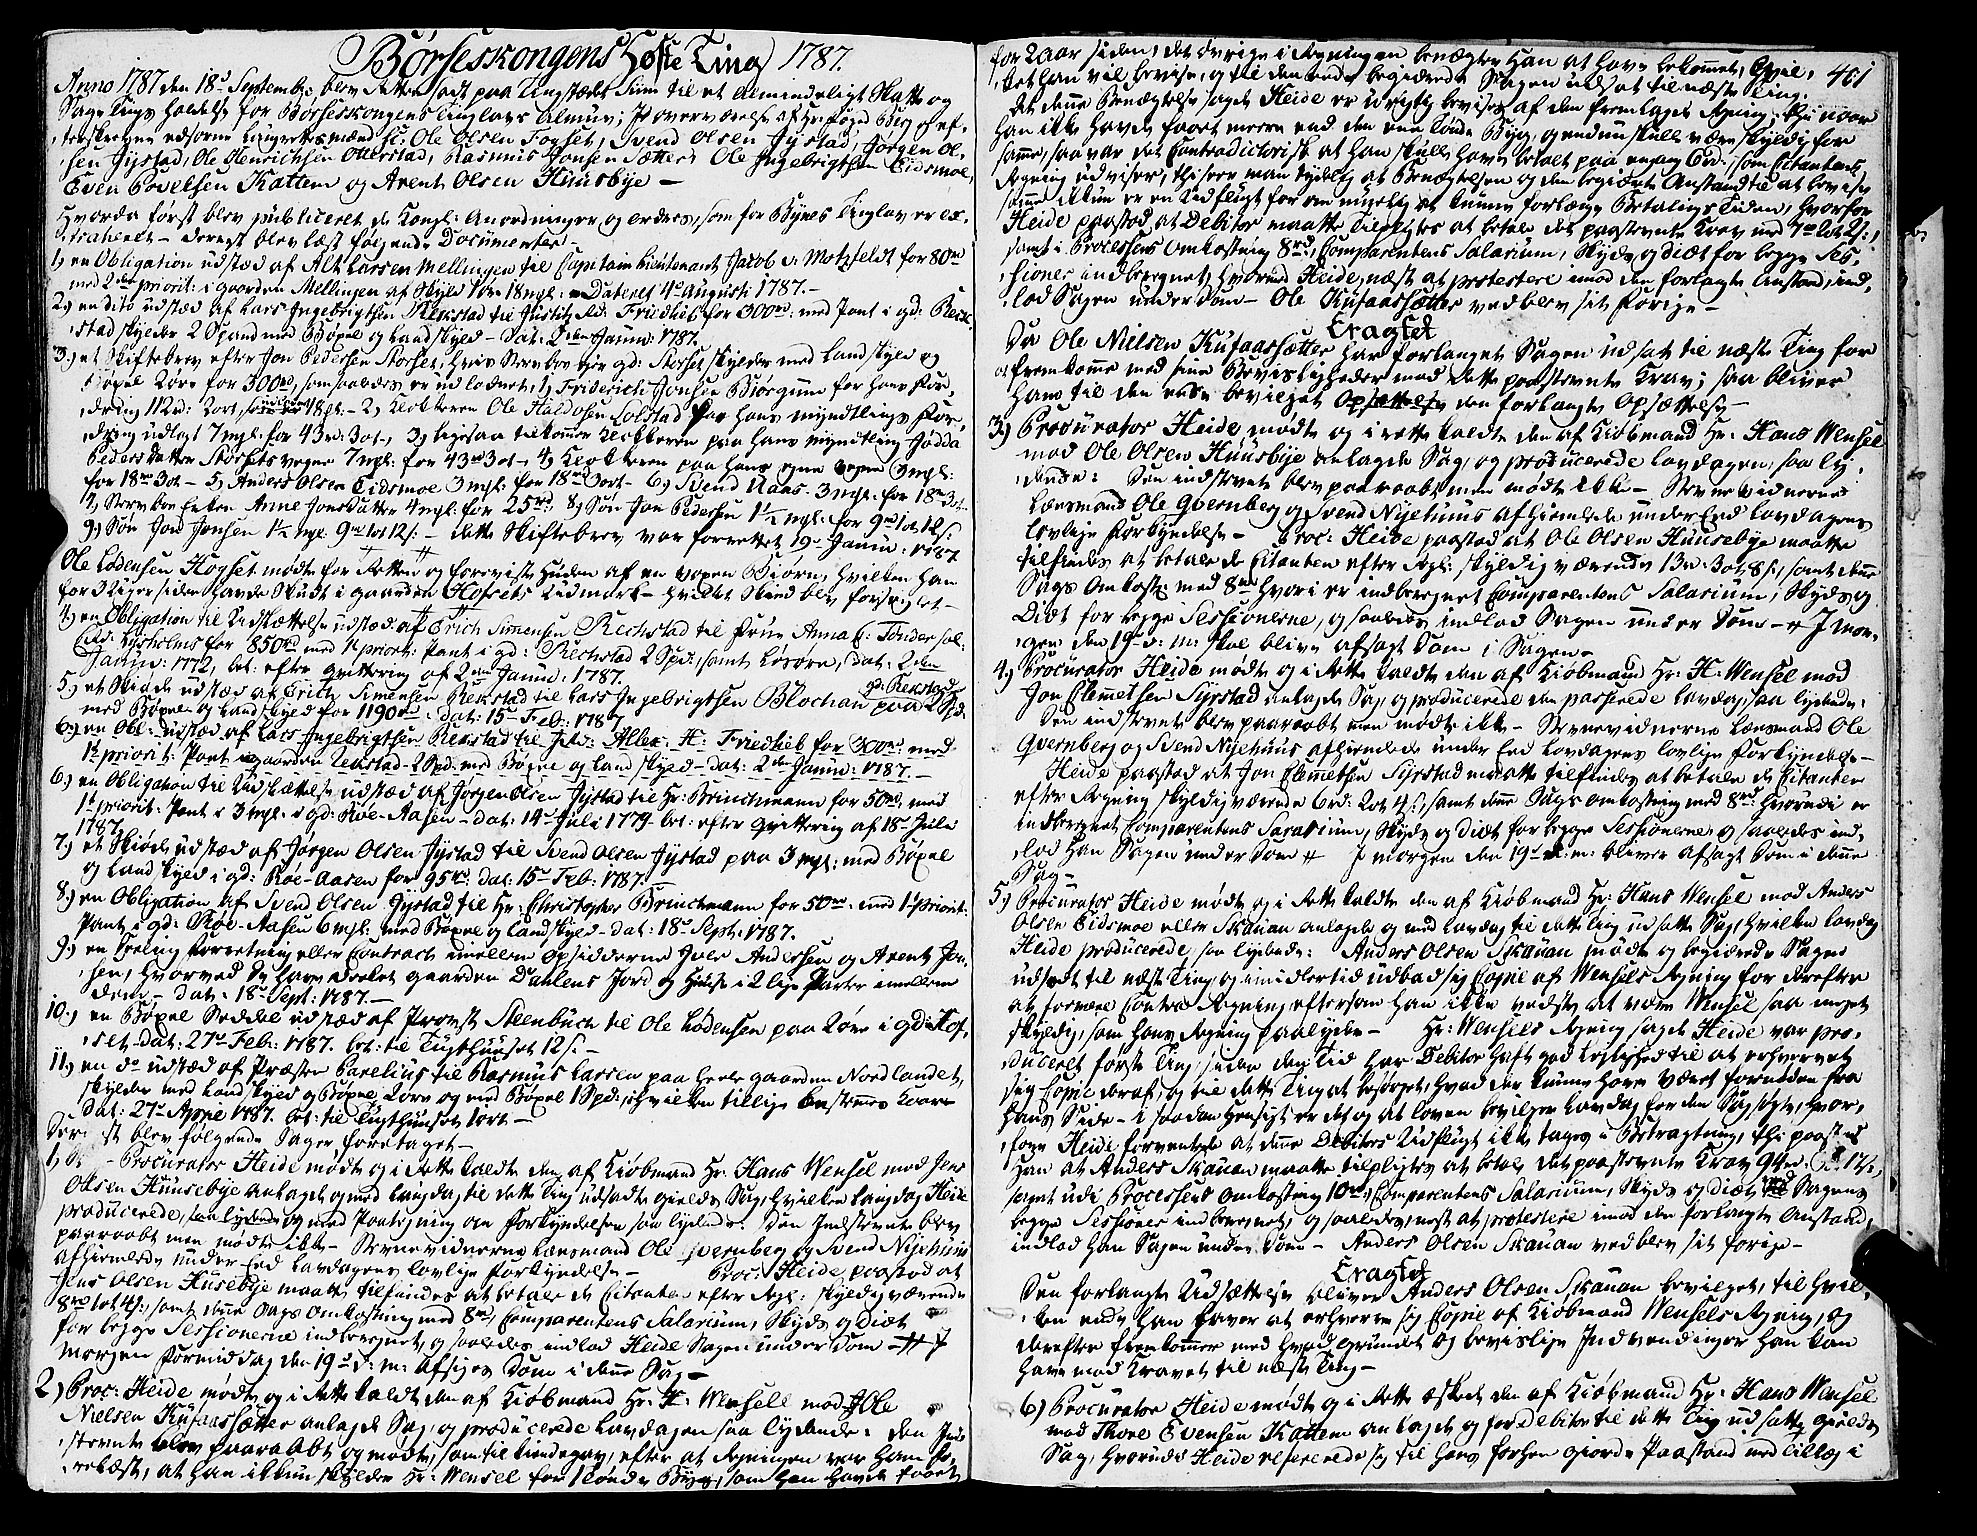 Børseskongens Høste Ting 1787.
Anno 1787 den 18de Septembr: blev Retten sadt paa Tingstædet Siim til et almindeligt Skatte og
Sage Tings holdelse for Børseskongens Tinglavs Almue; I overværelse af Hr: Foged Bing og ef-
terskrevne edsorne Laugrettesmænd Sr: Ole Olsen Fogset, Svend Olsen Jystad, Jørgen Ol-
sen Jystad, Ole Henrichsen Otterstad, Rasmus Jonsen Sætter, Ole Ingebrigtsen Eidsmoe,
Even Povelsen Kattem og Arent Olsen Huusbye –
Hvorda først blev publiceret de Kongl: Anordninger og ordres, som for Bynes Tinglav er ex-
traheret – dernest blev læst følgende Documenter.
1) en Obligation udstæd af Alt Larsen Mellingen til Capitain Lieutenant Jacob v: Motzfeldt for 80rd
med 2den priorit: i gaarden Mellingen af Skyld 1 øre 18 mgl: Dateret 4de Augusti 1787. –
2) en dito udstæd af Lars Ingebrigtsen Rekstad til Justitz Rd: Friedlieb for 300rd: med Pant i gd: Reck-
stad skylder 2 Spand med Bøxel og Landskyld – Dat: 2den Janu: 1787.
3) et Skiftebrev efter Jon Pedersen Storset, hvis Sterboe eyer gd: Storset skylder med Landskyld og
Bøxel 2 øre for 300rd, som saaledes er udlodnet, 1) Friderich Jonsen Biørgum for hans For-
dring 112rd: 2ort, 18 ß: – 2) Klokkeren Ole Haldosen Solstad paa hans myndtlings For-
dring udlagt 7 mgl: for 43rd: 3ort, 3) ligesaa tilkommer Klokkeren paa hans myndtling Jødda
Peders datter Storsets vegne 7 mgl: for 43rd 3ort – 4) Klokkeren paa hans egne vegne 3 mgl:
for 18rd 3ort – 5) Anders Olsen Eidsmoe 3 mgl: for 18rd 3ort – 6) Svend Aaas 3 mgl: for 18rd 3ort
7) Sterboe Enken Anne Jons datter 4 mgl: for 25rd: 8) Søn Jon Pedersen 1½ mgl: for 9rd 1ort 12 ß:
9) Søn Jon Jonsen 1½ mgl. 9rd 1ort 12 ß: – dette Skiftebrev var forrettet 19de Janu: 1787.
Ole Lodensen Høgset mødte for Retten og foreviste Huden af en voxen Biørn, hvilken han
for 3 Uger siden havde skudt i gaarden Hofsets Udmark – hvilket Skind blev forseiglet –
4) en Obligation til Udslættelse udstæd af Erich Simensen Reckstad til Frue Anna C: Tønder sal:
Lysholms for 850rd med 1te priort: Pant i gd: Reckstad 2 Spd:, samt Løsøre, dat: 2den
Janu: 1772, bet: efter qvittering af 2den Janu: 1787.
5) et Skiøde udstæd af Erich Simensen Rekstad til Lars Ingebrigtsen Blockan paa gd: Rekstad 2 Spd:
med Bøxel og Landskyld for 1190rd: dat: 15de Feb: 1787.
6) en Obl: udstæd af Lars Ingebrigtsen Rekstad til Jstd: Allex: H: Friedlieb for 300rd. med
1te priorit: Pant i gaarden Rekstad 2 Spd: med Bøxel og Landskyld – dat: 2den Janu: 1787. –
6) en Obligation til Udslættelse udstæd af Jørgen Olsen Jystad til Hr: Brinchmann for 50rd. med
1te priorit: Pant i 3 mgl: i gd: Røe-Aasen – dat: 14de Juli 1779 – bet: efter qvittering af 18de Juli
1787.
7) et Skiøde udstæd af Jørgen Olsen Jystad til Svend Olsen Jystad paa 3 mgl: med Bøxel
og Landskyld i gd: Røe-Aasen for 95rd: dat: 15de Feb: 1787.
8) en Obligation af Svend Olsen Jystad til Hr: Christopher Brinchmann for 50rd: med 1te priorit:
Pant i gd: Røe-Aasen 6 mgl: med Bøxel og Landskyld – dat: 18de Sept: 1787.
9) en Deeling Forretning eller Contract imellem Opsidderne Iver Andersen og Arent Jon-
sen, hvorved de have deelet gaarden Dahlens Jord og Huuse i 2 lige Parter imellem
dem – dat: 18de Sept: 1787. –
10) en Bøxel Seddel udstæd af Provst Steenbuch til Ole Lodensen paa 2 øre i gd: Hof-
set – dat: 27de Feb: 1787. bet: til Tugthuuset 12 ß. –
11) en do udstæd af Præsten Parelius til Rasmus Larsen paa heele gaarden Nordlandet,
skylder med Landskyld og Bøxel 2 øre og med Bøxel 1 Spd:, hvilken tillige
Dat: 27de 1787. bet: til Tugthuuset 1ort –
Dernest blev følgende Sager foretaget –
1) Procurator Heide mødte og i Rette kaldte den af Kiøbmand Hr: Hans Wensel mod Jens
Olsen Huusebye anlagde og med Laugdag til dette Ting udsadte giælds Sag, hvilken Laugdag Heide
producerede, saa lydende og med Paategning om Forkyndelsen saa lydende: Den Indstevnte blev
paaraabt men mødte ikke – Stevnevidnerne Lænsmand Ole Qvernberg og Svend Nyehuus
afhiemlede under Eed Lavdagens lovlige Forkyndelse – Proc: Heide paastod at
Jens Olsen Husebye maatte tilfindes at betale de Citanten efter Rgl: skyldig værende
8rd 1ort 4 ß:, samt denne Sags Omkostning med 8rd, Comparentens Salarium, Skyds og Diæt
for begge Sessionerne indberegnet, og saaledes indlod Heide Sagen under Dom – # I
morgen Formiddag den 19de d: m: afsiges Dom i denne Sag –
2) Proc: Heide mødte og i Rette kaldte den af Kiøbmand Hr: H: Wensell mod Ole
Nielsen Kufaassætter anlagde Sag, og producerede Lavdagen saa lydende: Den Ind-
stevnte blev paaraabt og mødte, som tilkiendegav, efter at Regningen var ham fo-
relæst, at han ikkun skylder Hr: Wensel for 1 Tønde Byg, som han havde faaet
401
for 2 aar siden, det øvrige i Regningen benægter han at have bekommet, hvil-
ket han vil bevise, og til den ende begiærede Sagen udsat til næste Ting.
At denne Benægtelse sagde Heide er urigtig bevises af den fremlagde Regning, thi naar
han ikke havde faaet meere end den eene Tønde Byg, og endnu skulle være skyldig for
samme, saa var det Contradictorisk at han skulle have betalt paa engang 6rd:, som Citantens
Regning udviser, thi seer man tydelig at Benægtelsen og den begiærte Anstand til at bevise
samme ikkun er en Udflugt for om mueligt at kunne forlænge Betalings Tiden, hvorfor
Heide paastod at Debitor maatte tilpligtes at betale det paastevnte Krav med 7rd 1ort 2 ß:,
samt i Processens Omkostning 8rd:, Comparentens Salarium, Skyds og Diæt for begge Ses-
sioner indberegnet, hvormed Heide, næst at protestere imod den forlangte Anstand, ind-
lod Sagen under Dom – Ole Kufaassætter vedblev sit Forrige –
Eragtet
Da Ole Nielsen Kufaassætter har forlanget Sagen udsat til næste Ting for
at fremkomme med sine Bevisligheder mod dette paastevnte Krav; saa bliver
ham til den ende bevilget den forlangte Opsættelse –
3) Procurator Heide mødte og i rette kaldte den af Kiøbmand Hr: Hans Wensel
mod Ole Olsen Huusbye anlagde Sag, og producerede Lavdagen, saa ly-
dende: Den indstevnte blev paaraabt men mødte ikke – Stevnevidnerne
Lænsmand Ole Qvernberg og Svend Nyehuus afhiemlede under Eed Lavdagens
lovlige Forkyndelse – Proc: Heide paastod at Ole Olsen Huusebye maatte
tilfindes at betale de Citanten efter Regl: skyldig værende 13rd: 3ort 8 ß:, samt denne
Sags Omkostn: med 8rd hvori er indberegnet Comparentens Salarium, Skyds og
Diæt for begge Sessionerne, og saaledes indlod Sagen under Dom – # I mor-
gen den 19de d: m: skal blive afsagt Dom i Sagen –
4) Procurator Heide mødte og i Rette kaldte den af Kiøbmand Hr: H: Wensel mod
Jon Clemetsen Syrstad anlagde Sag, og producerede den passerede Lavdag, saa lydende:
Den indstevnte blev paaraabt men mødte ikke – Stevnevidnerne Lænsmand Ole
Qvernberg og Svend Nyehuus afhiemlede under Eed Lovdagens lovlige Forkyndelse –
Heide paastod at Jon Clemetsen Syrstad maatte tilfindes at betale de Citanten
efter Regning skyldig værende 6rd: 2ort 4 ß:, samt denne Sags omkostning med 8rd hvorudi er
indberegnet Comparentens Sararium, Skyds og Diæt for begge Sessionerne og saaledes ind-
lod han Sagen under Dom # I morgen den 19de d: m: bliver afsagt Dom i denne
Sag –
5) Procurator Heide mødte og i Rette kaldte den af Kiøbmand Hr: Hans Wensel mod Anders
Olsen Eidsmoe eller Skauan anlagde og med Lavdag til dette Ting udsatte Sag, hvilken Lavdag
Heide producerede, saa lydende: Anders Olsen Skauan mødte og begiærede Sagen
udsadt til næste Ting, og imidlertid udbad sig Copie af Wensels Regning for derefter
at formere Contra Regning, eftersom han ikke vedste at være Wensel saa meget
skyldig, som hans Regning paalyder – Hr: Wensels Regning sagde Heide var pro-
duceret første Ting, siden den Tid har Debitor haft god Leylighed til at erhvervet
sig Copie deraf, og til dette Ting at besørget, hvad der kunne have været fornøden fra
hans Side – I saadan Henseigt er det og at Loven bevilger Lavdag for den Sagsøgte, hvor-
fore Heide forventede at denne Debitors Udflugt ikke tages i Betragtning, thi paastod
han at Anders Skauan maatte tilpligtes at betale det paastevnte Krav 94rd. 12 ß,
samt udi Processens Omkostning 10rd:, Comparentens Salarium, Skyds og diæt Sagens
begge Sessioner indberegnet, og saaledes, næst at protestere imod den forlangte Anstand,
indlod han Sagen under Dom – Anders Olsen Skauan vedblev sit forige –
Eragtet
Den forlangte Udsættelse bliver Anders Olsen Skauan bevilget, til hvil-
ken ende han haver at erhverve sig Copie af Kiøbmand Wensels Regning, og
derefter fremkommer med hvad grundet og bevislige Indvendinger han kan
have mod Kravet til næste Ting –
6) Procurator Heide mødte og i Rette æskede den af Kiøbmand Hr: Hans Wensel
mod Thore Evensen Kattem anlagde og for Debitor til dette Ting udsatte giælds
Sag, hvorudi Heide refererede sig til hans forhen giorde Paastand med tillæg i